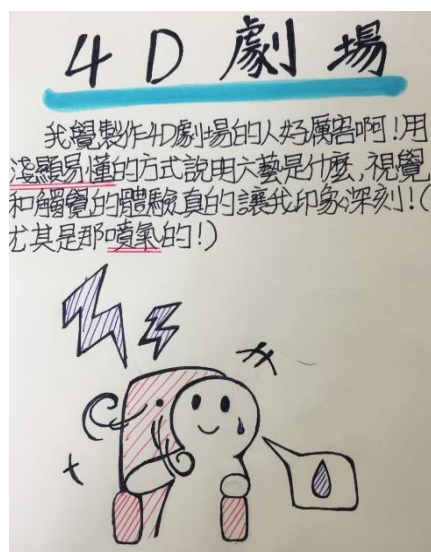 4D劇場
我覺製作4D劇場的人好厲害啊!用
淺顯易懂的方式說明六藝是什麼,視覺
和觸覺的體驗真的讓我印象深刻!(
尤其是那噴氣的!)